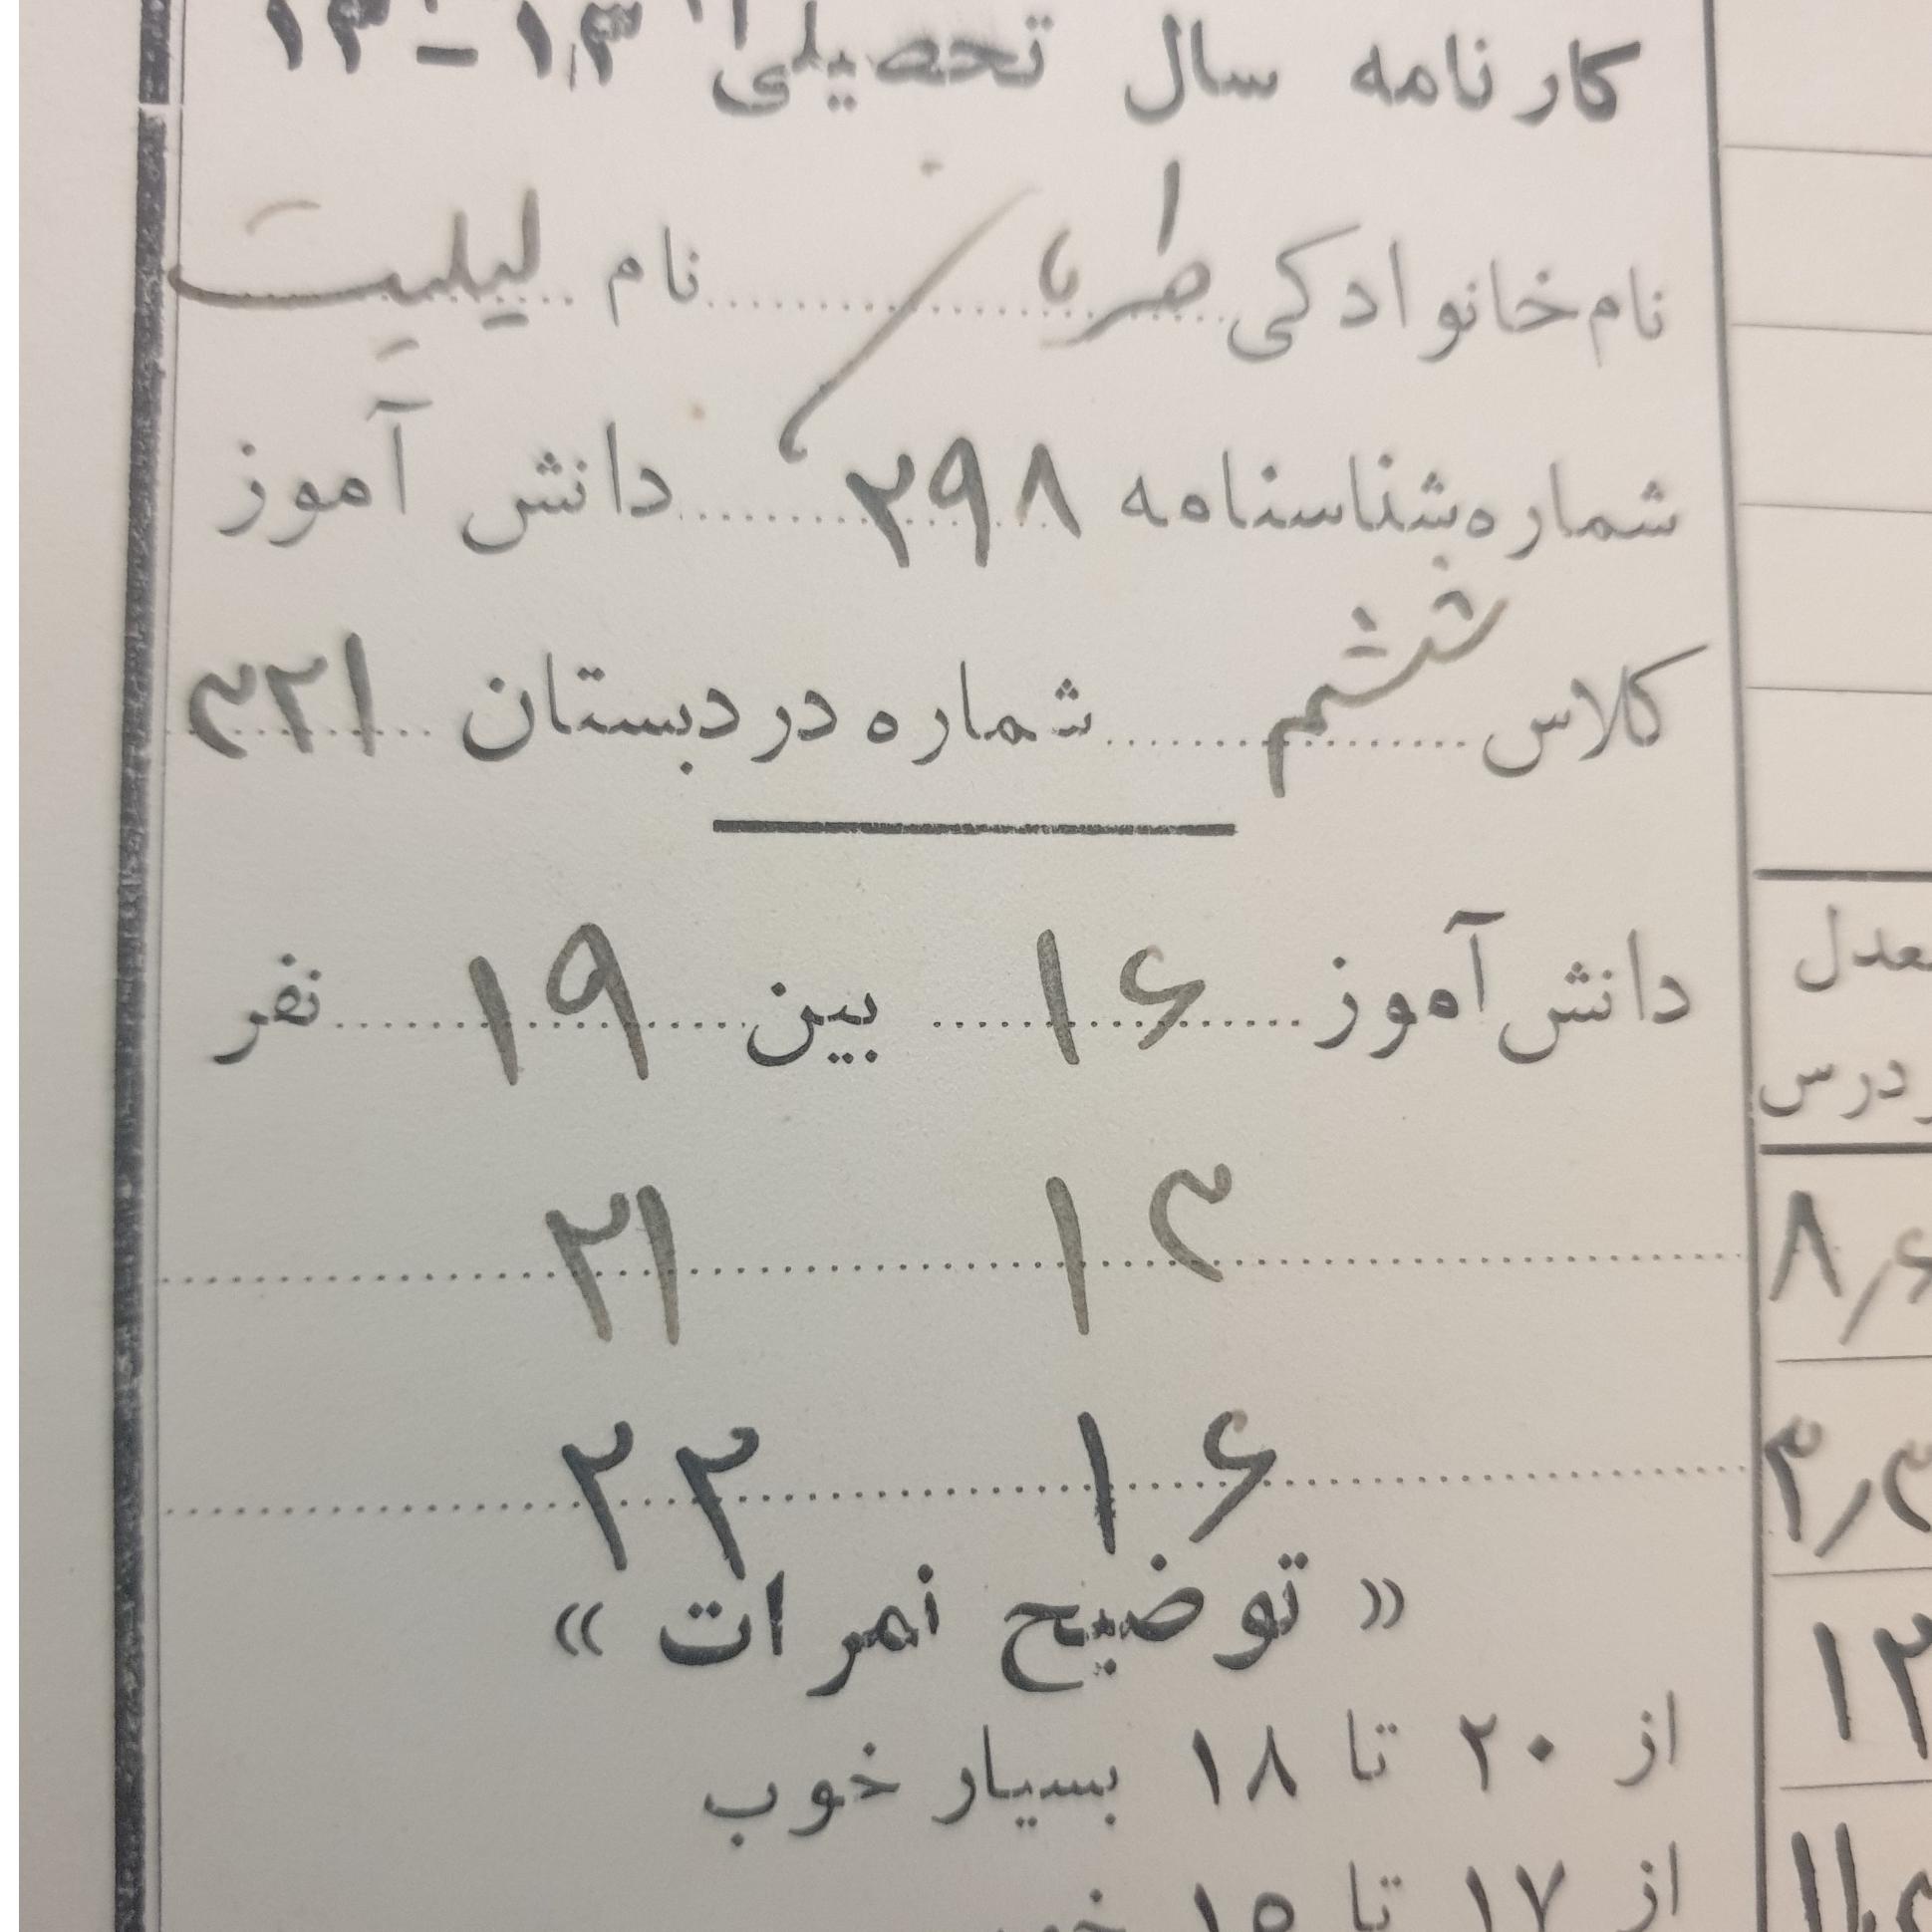 کارنامه سال تحصیلی ۱۳ - ۱۳
نام خانوادگی نام لیلیت
شماره شناسنامه ۲۹۸ دانش آموز
کلاس ششم شماره در دبستان ۲۲۱
دانش آموز ۱۶ بین ۱۹ نفر
۱۲ ۲۱
۱۶ ۲۲
« توضیح نمرات »
از ۲۰ تا ۱۸ بسیار خوب
از ۱۷ تا ۱۵ خوب
معدل
درس
۸٫۶
۱۲